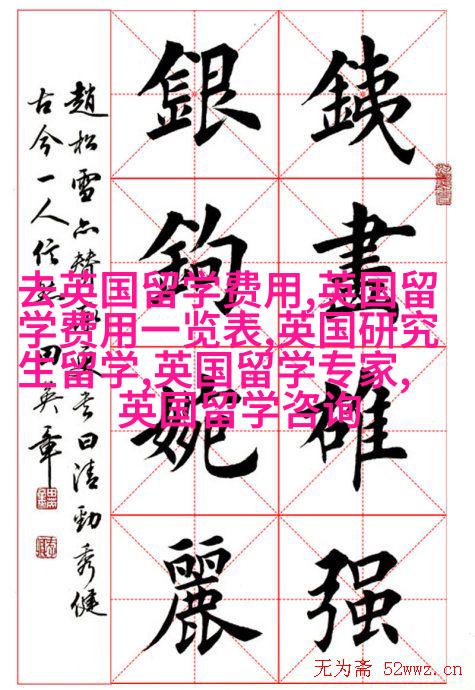 銕畫雄强
銀鉤婉麗
趙松雪亦贊率更书曰清勁秀健
古今一人信然 田英章
去英国留学费用,英国留
学费用一览表,英国研究
生留学,英国留学专家,
英国留学咨询
无为斋 52wwz.cn